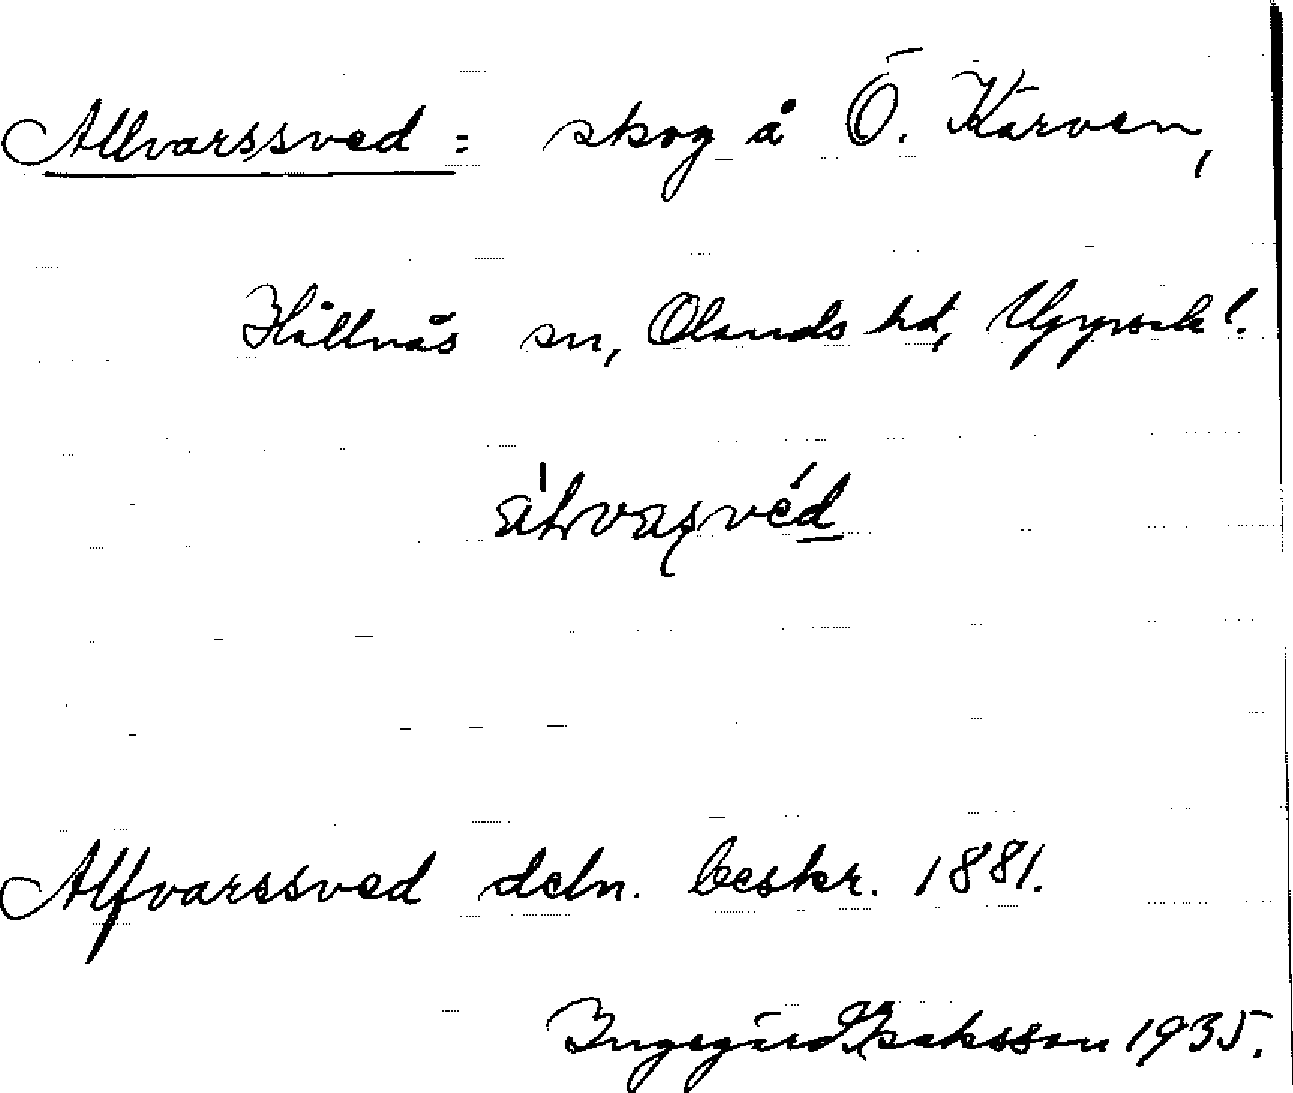 Allvarssved: skog å Ö. Karven,
Hållnäs sn, Olands hd, Uppsala l.
Alfvarssved deln. beskr. 1881.
Ingegärd Isaksson 1935.